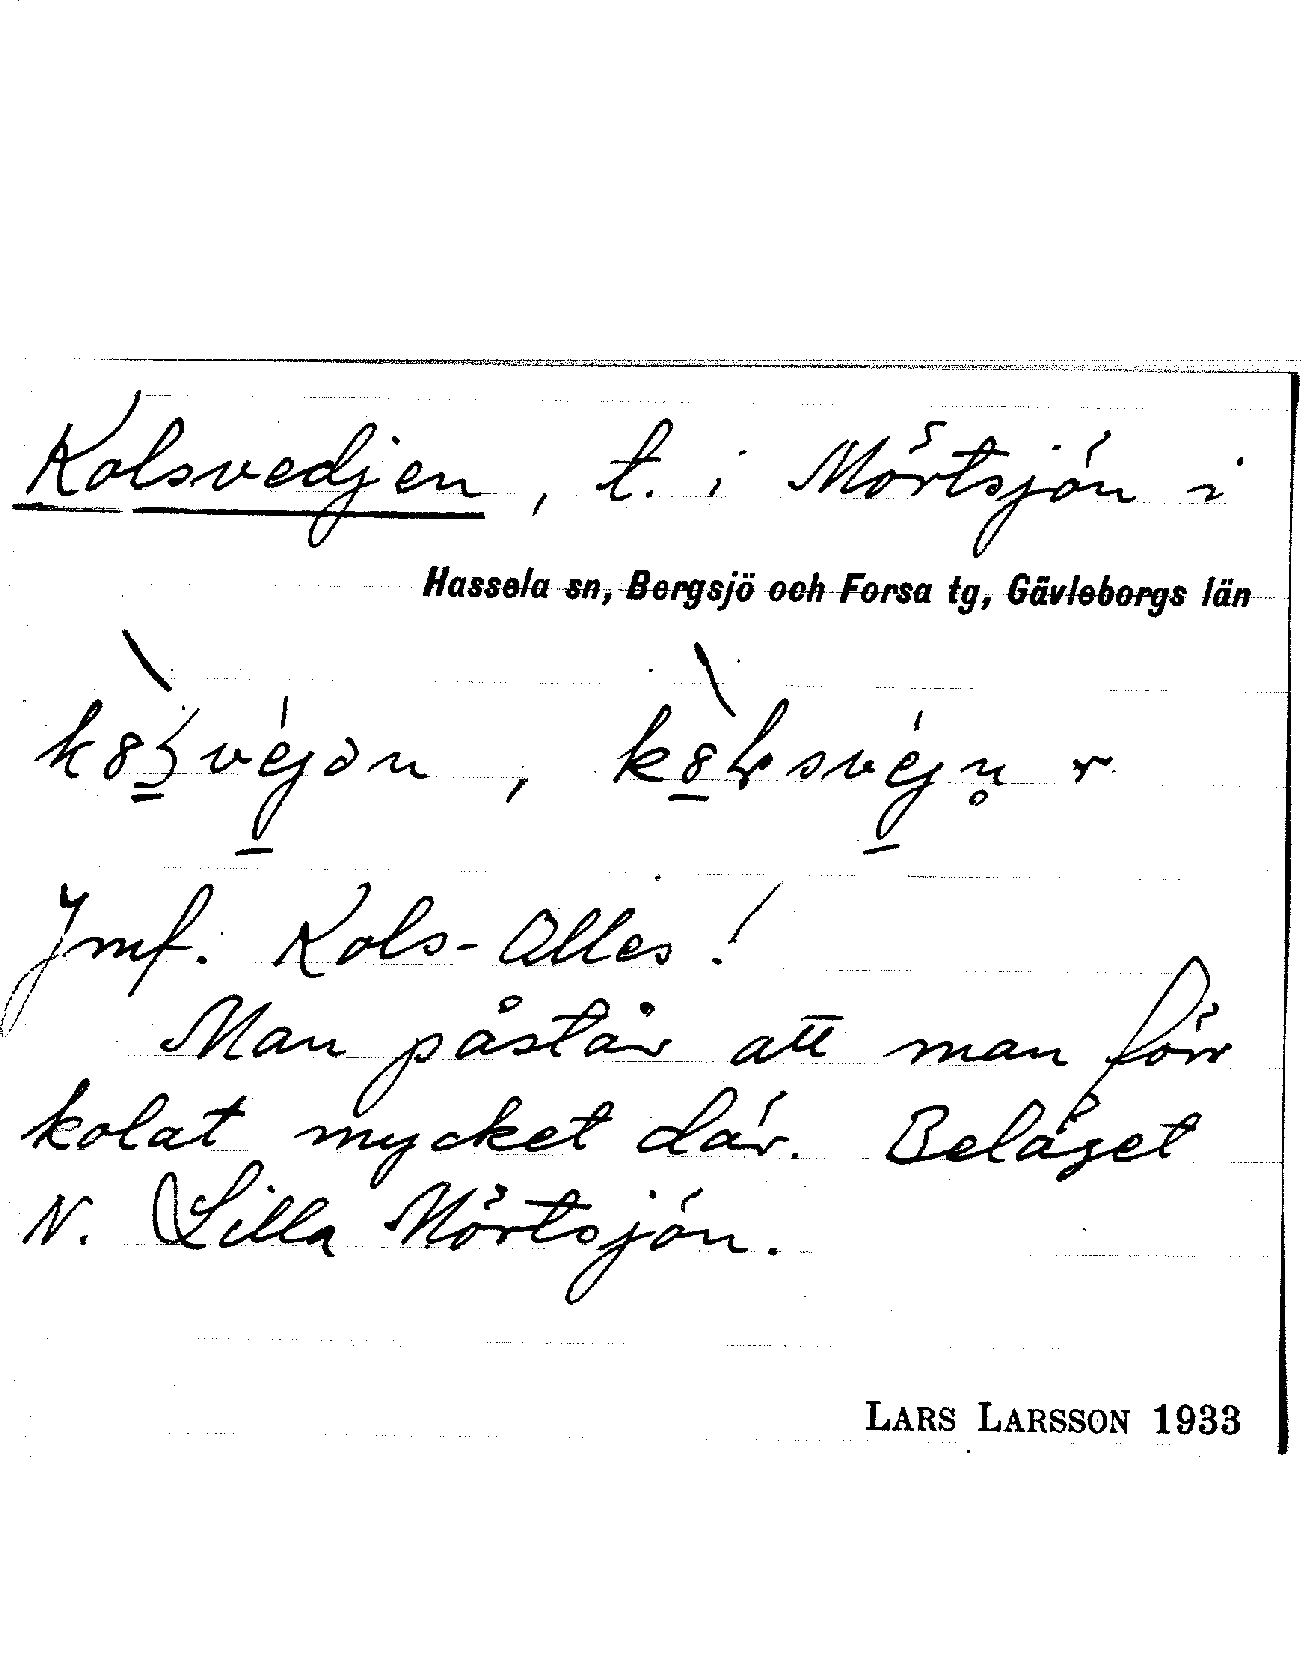 Kolsvedjen, t. i Mörtsjön i
Hassela sn, Bergsjö och Forsa tg, Gävleborgs län
r
Jmf. Kols-Alles!
Man påstår att man förr
kolat mycket där. Beläget
N. Lilla Mörtsjön.
LARS LARSSON 1933